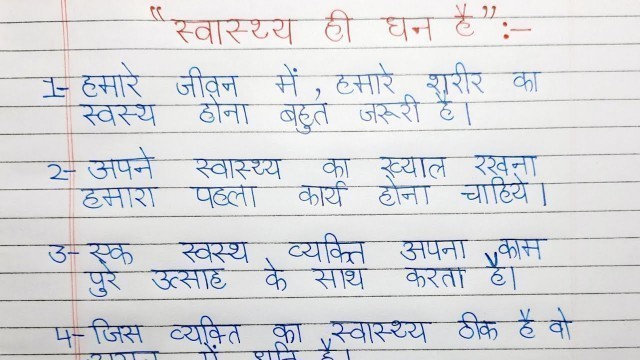 "स्वास्थ्य ही धन है" :-
1- हमारे जीवन में, हमारे शरीर का
स्वस्थ होना बहुत जरूरी है।
2- अपने स्वास्थ्य का ख्याल रखना
हमारा पहला कार्य होना चाहिये।
3- एक स्वस्थ व्यक्ति अपना काम
पुरे उत्साह के साथ करता है।
4- जिस व्यक्ति का स्वास्थ्य ठीक है वो
में है।